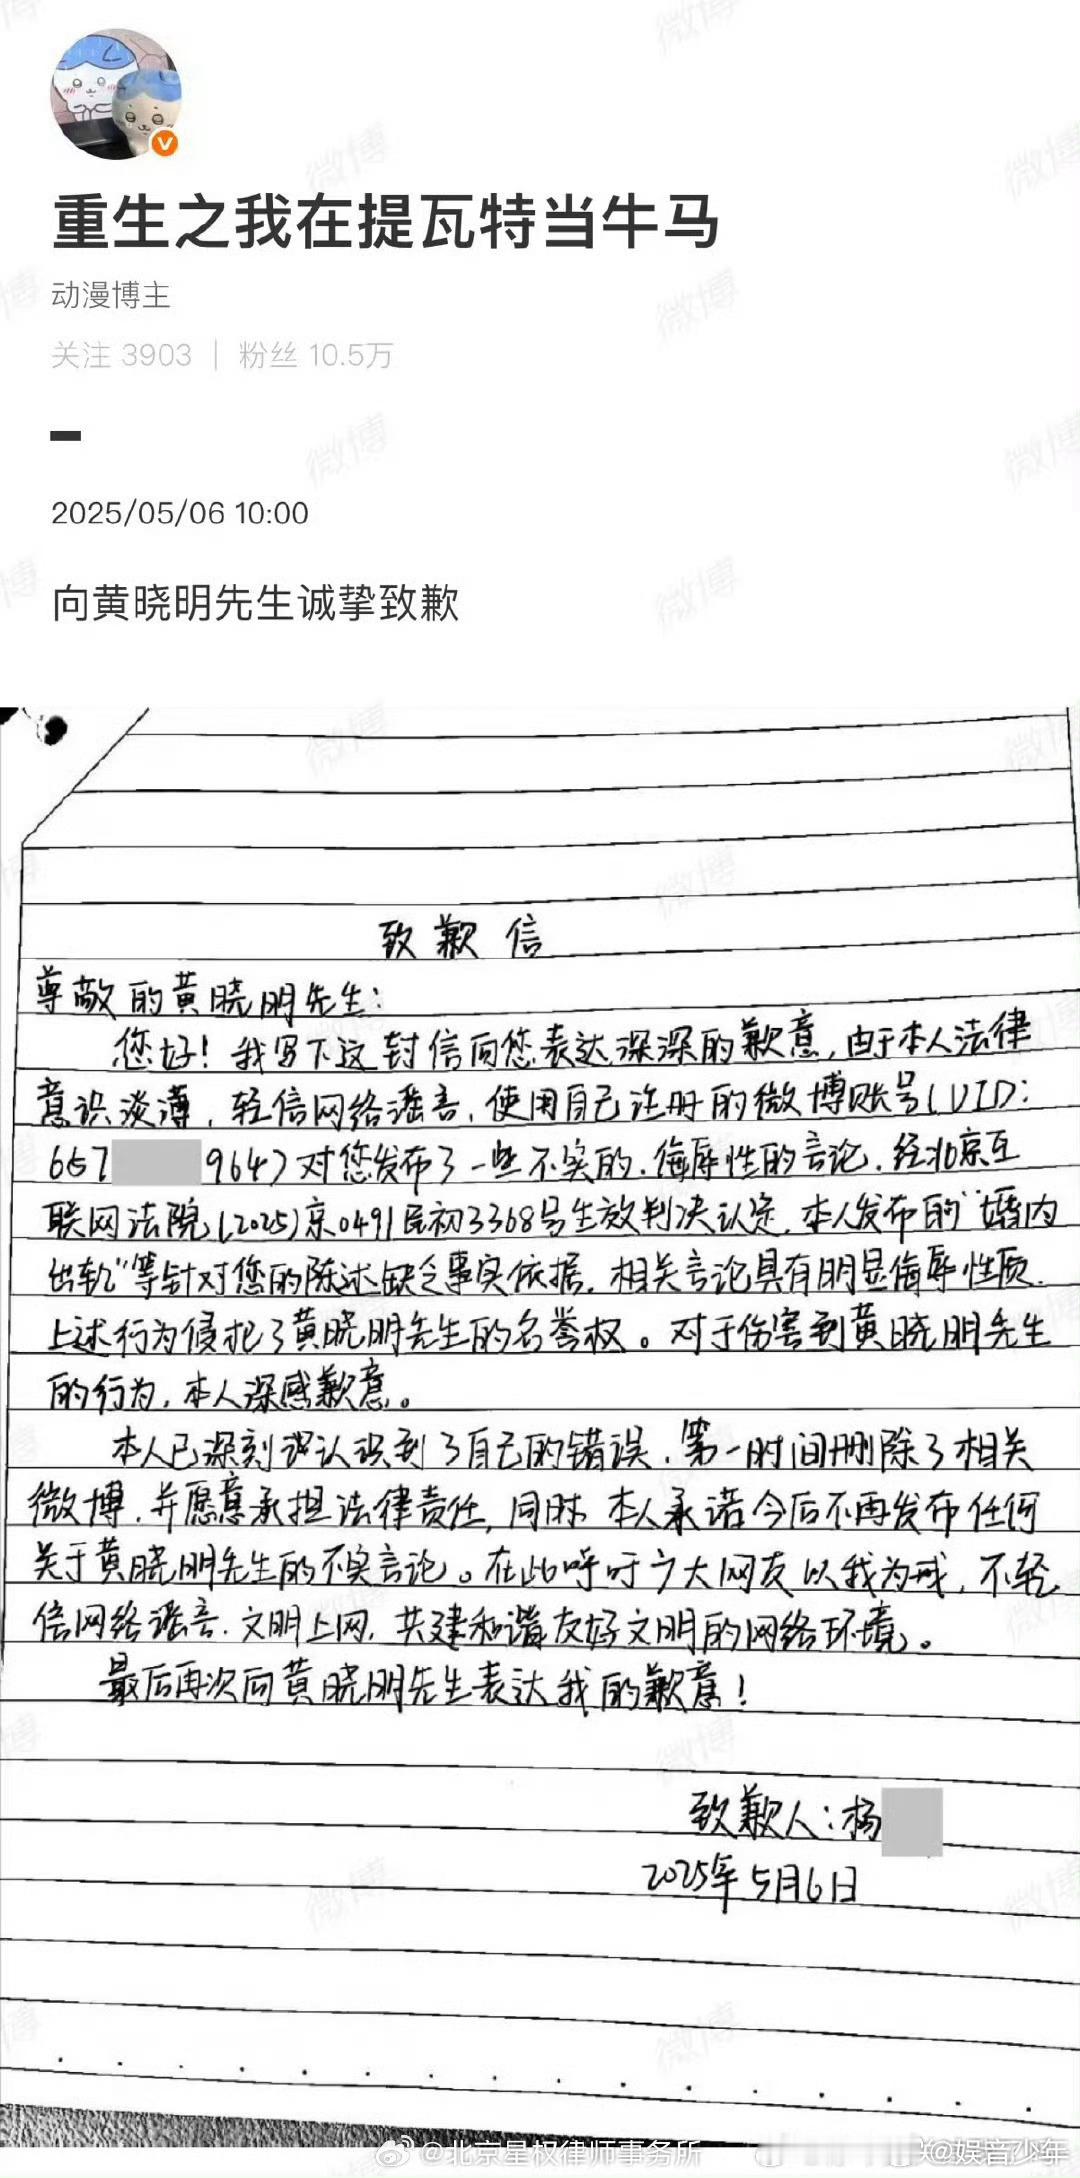 重生之我在提瓦特当牛马
动漫博主
关注 3903 | 粉丝 10.5万
2025/05/06 10:00
向黄晓明先生诚挚致歉
致歉信
尊敬的黄晓明先生:
您好!我写下这封信向您表达深深的歉意,由于本人法律
意识淡薄,轻信网络谣言,使用自己注册的微博账号(UID:
657 9647对您发布了一些不实的、侮辱性的言论,经北京互
联网法院(2025)京0491民初3368号生效判决认定,本人发布的"婚内
出轨"等针对您的陈述缺乏事实依据,相关言论具有明显侮辱性质,
上述行为侵犯了黄晓明先生的名誉权。对于伤害到黄晓明先生
的行为,本人深感歉意。
本人已深刻认识到了自己的错误,第一时间删除了相关
微博,并愿意承担法律责任,同时本人承诺今后不再发布任何
关于黄晓明先生的不实言论。在此呼吁广大网友以我为戒,不轻
信网络谣言,文明上网,共建和谐友好文明的网络环境。
最后再次向黄晓明先生表达我的歉意!
致歉人:杨
2025年5月6日
@北京星权律师事务所
@娱音少年
微博